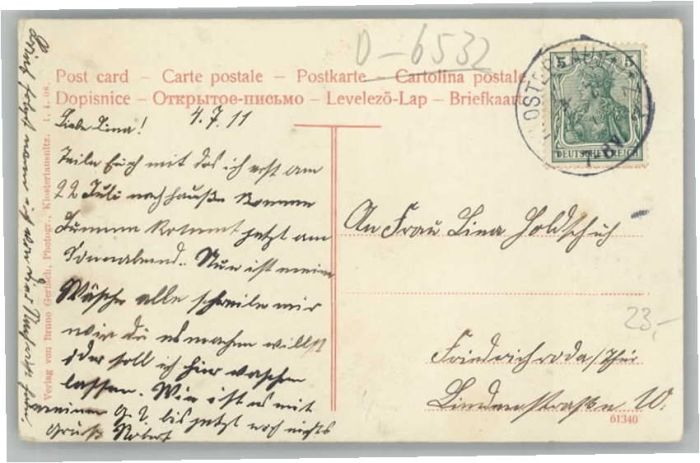 D-6532
Post card – Carte postale – Postkarte – Cartolina postale
Dopisnice – Открытое-письмо – Levelező-Lap – Briefkaart
5 5
DEUTSCHES REICH
4.7.11
Liebe Lina!
Teile Euch mit das ich erst am
22 Juli nachhause komme
kommt jetzt am
Sonnabend. Nun ist meine
Wäsche alle schreibe mir
wie du es machen willst
oder soll ich hier waschen
lassen. Wie ist es mit
meinem G. T. bis jetzt noch nichts
Gruß Robert
An Frau Lina Holdschuh
23,-
Friedrichroda/Thür
Lindenstraße 10.
61340
Verlag von Bruno Gerlach, Photogr., Klosterlausnitz. 1. 4. 08.